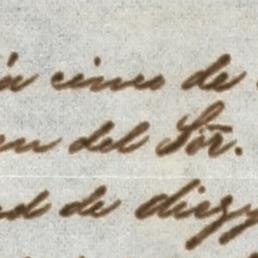 ia cinco de
en del Sōr.
ad de diezy